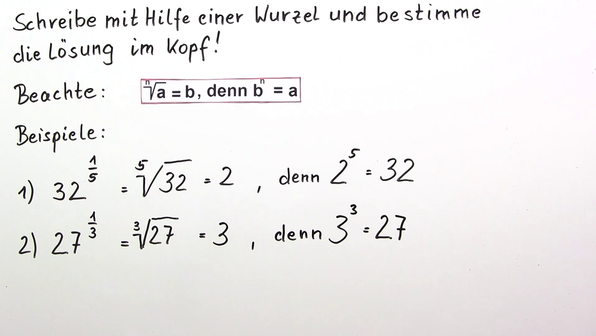 Schreibe mit Hilfe einer Wurzel und bestimme
die Lösung im Kopf!
Beachte: ⁿ√a = b, denn bⁿ = a
Beispiele:
1) 32^(1/5) = ⁵√32 = 2 , denn 2⁵ = 32
2) 27^(1/3) = ³√27 = 3 , denn 3³ = 27